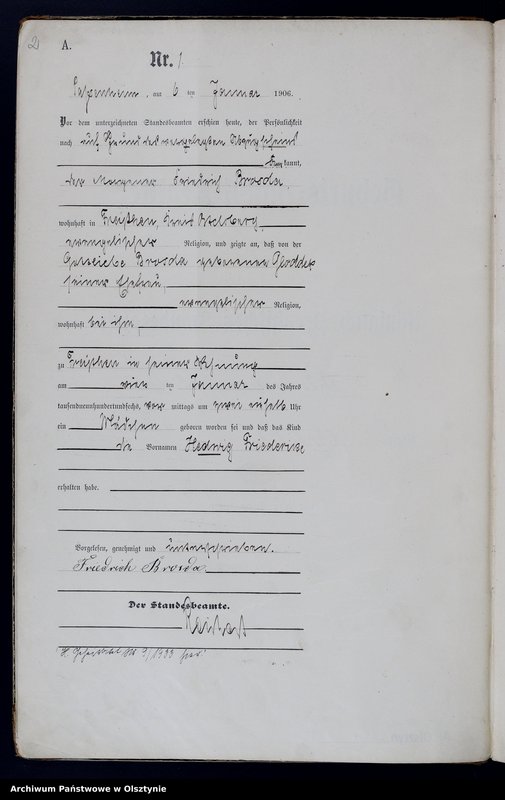 2
A.
Nr. 1.
am 6 ten Januar 1906.
Vor dem unterzeichneten Standesbeamten erschien heute, der Persönlichkeit
nach auf Grund des vorgelegten
kannt,
der Friedrich Brosda
wohnhaft in Kreis Ortelsburg
evangelischer Religion, und zeigte an, daß von der
Gottliebe Brosda geborenen
seiner Ehefrau,
evangelischer Religion,
wohnhaft bei ihm
zu in seiner Wohnung
am vier ten Januar des Jahres
tausendneunhundertundsechs, vor mittags um Uhr
ein Mädchen geboren worden sei und daß das Kind
die Vornamen Hedwig Friederike
erhalten habe.
Vorgelesen, genehmigt und unterschrieben.
Friedrich Brosda
Der Standesbeamte.
Archiwum Państwowe w Olsztynie